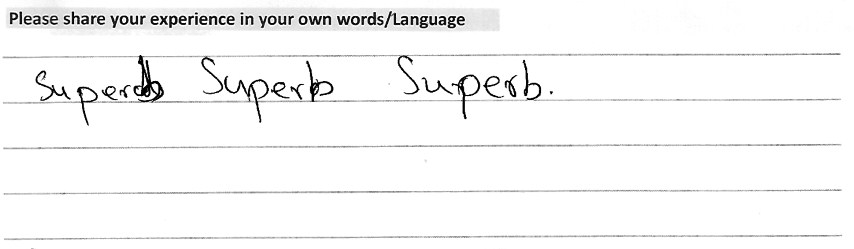 Please share your experience in your own words/Language
Superb Superb Superb.